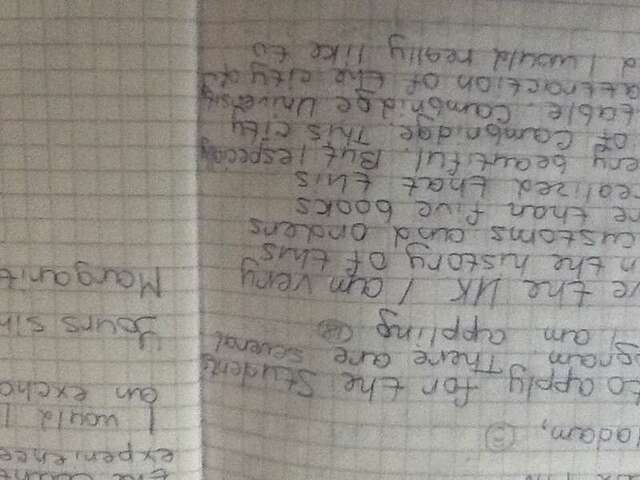 adam,
to apply for the Students
gram There are several
I am appling
ve the UK I am very
n the history of this
customs and orders
re than five books
realized that this
ery beautiful. But I especialy
of Cambridge. This city
table. Cambridge University
attraction of the city of
d I would really like to
experience
I would l
an excha
Yours sin
Margarit